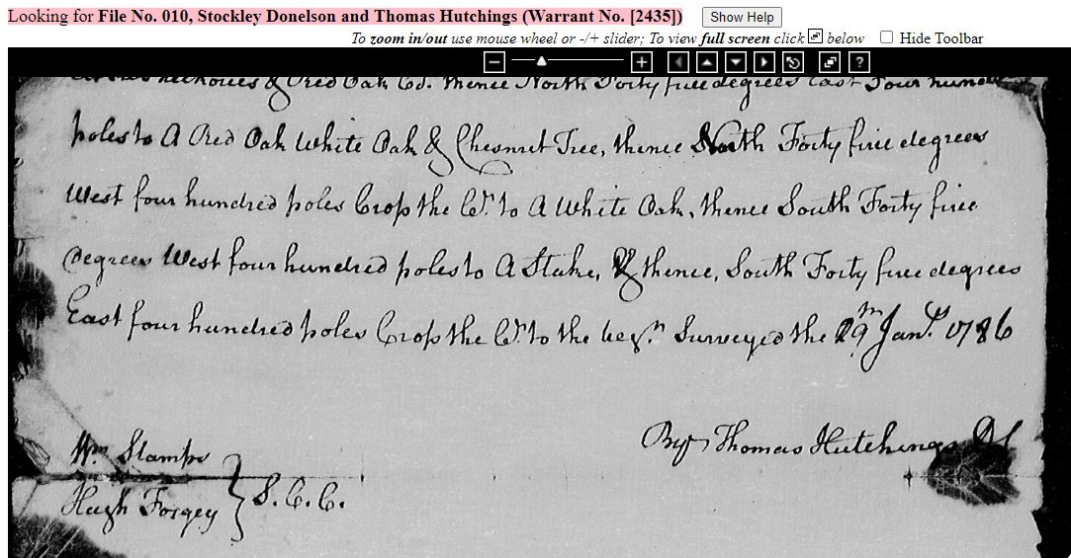 Looking for File No. 010, Stockley Donelson and Thomas Hutchings (Warrant No. [2435]) Show Help
To zoom in/out use mouse wheel or -/+ slider; To view full screen click below Hide Toolbar
& Red Oak Co. thence North Forty five degrees East Four hund
poles to A Red Oak White Oak & Chesnut Tree, thence North Forty five degrees
West four hundred poles Crofs the Cr. to A White Oak, thence South Forty five
degrees West four hundred poles to A Stake, & thence, South Forty five degrees
East four hundred poles Crofs the Cr. to the beg.n Surveyed the 29th Jan.y 1786
By Thomas Hutchings DS
Wm Stamps
Hugh Forgey } S.C.C.